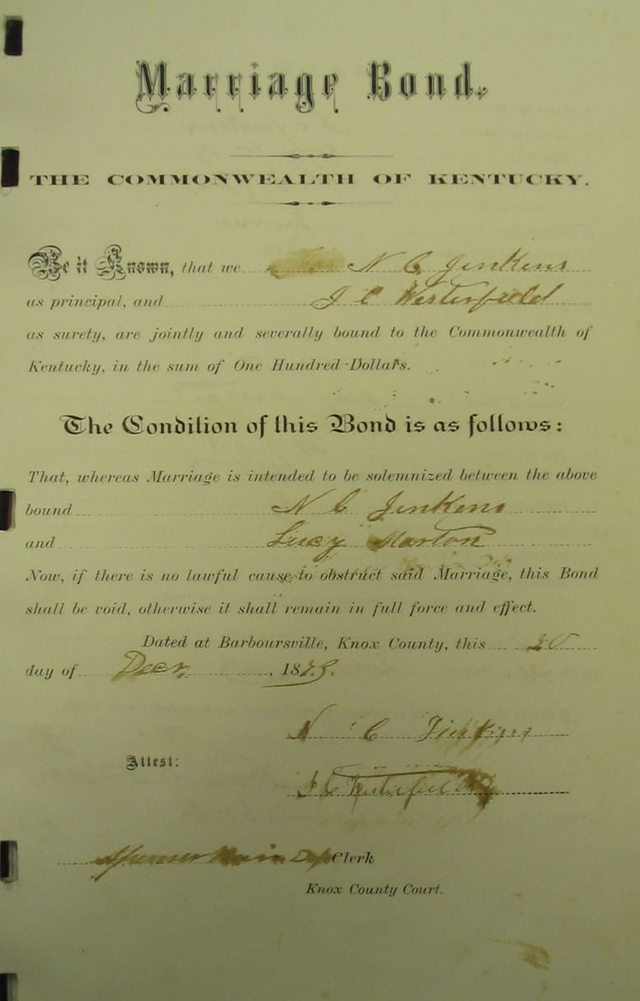 Marriage Bond.
THE COMMONWEALTH OF KENTUCKY.
Be it Known, that we N C Jenkins
as principal, and J C Westerfield
as surety, are jointly and severally bound to the Commonwealth of
Kentucky, in the sum of One Hundred Dollars.
The Condition of this Bond is as follows:
That, whereas Marriage is intended to be solemnized between the above
bound N C Jenkins
and Lucy
Now, if there is no lawful cause to obstruct said Marriage, this Bond
shall be void, otherwise it shall remain in full force and effect.
Dated at Barboursville, Knox County, this 30
day of Decr, 187
N C Jenkins
Attest:
J C Westerfield
Clerk
Knox County Court.